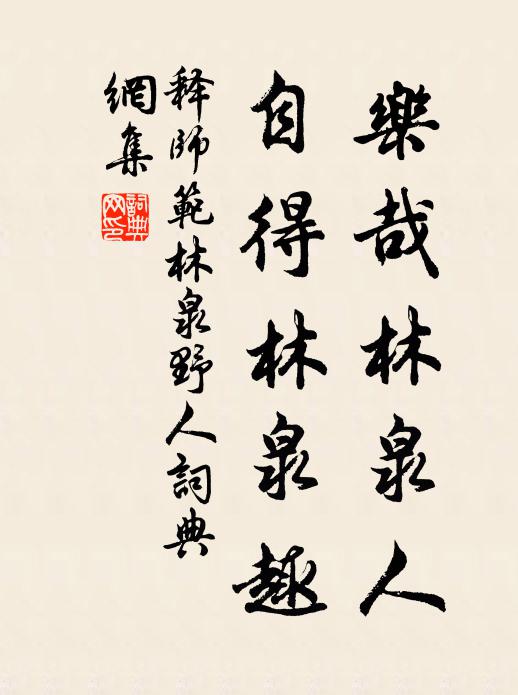 樂哉林泉人
自得林泉趣
释師範林泉野人詞典
網集
詞典
网印